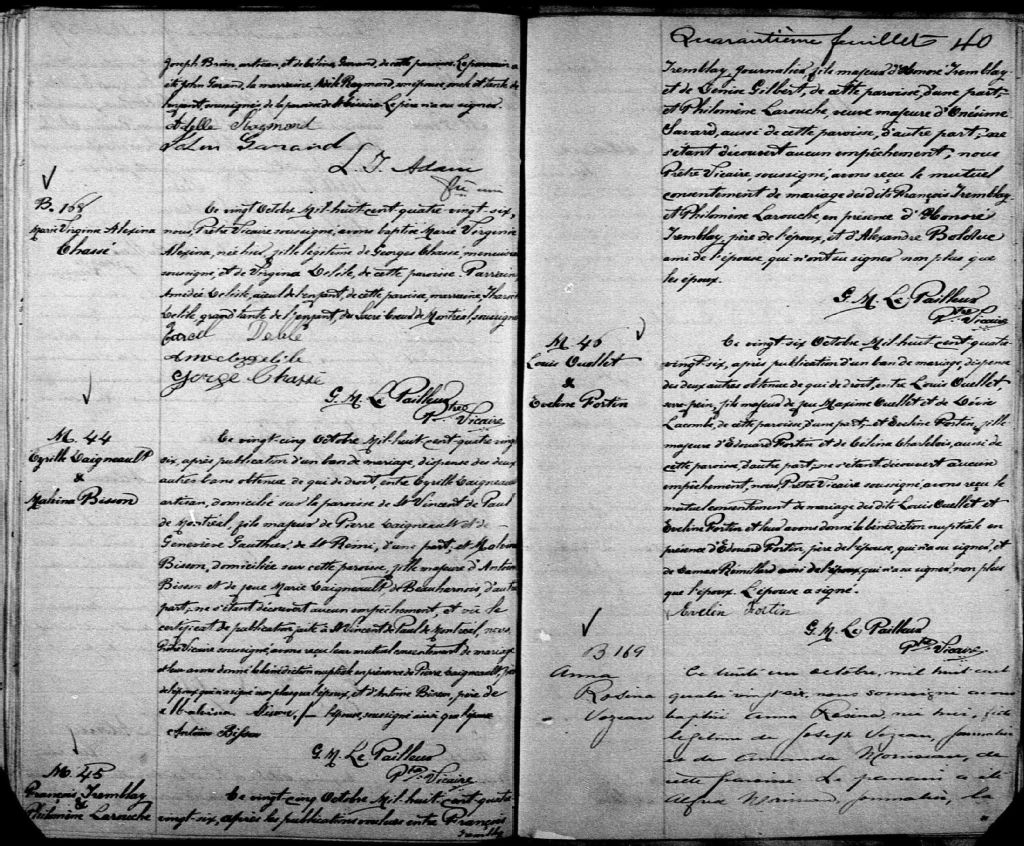 Joseph Brien, artisan, et de Célina Garand, de cette paroisse. Le parrain a
été John Garand, la marraine, Adèle Raymond, son épouse, oncle et tante de
l'enfant, soussignés, de la paroisse de L'Acadie. Le père n'a su signer.
Adelle Raymond
John Garand
L. J. Adam
B. 168
Marie Virginie Alexina
Chassé
Ce vingt Octobre Mil-huit cent quatre vingt-six,
nous, Prêtre Vicaire soussigné, avons baptisé Marie Virginie
Alexina, née hier, fille légitime de Georges Chassé, menuisier
soussigné, et de Virginia Delisle, de cette paroisse. Parrain
Amédée Delisle, aieul de l'enfant, de cette paroisse, marraine,
Delisle, grand'tante de l'enfant, du Sacré Coeur de Montréal, soussignés
George Chassé
G. M. Le Pailleur
Ptre Vicaire
M. 44
Cyrille Daigneault
&
Malvina Bisson
Ce vingt-cinq Octobre Mil-huit cent quatre vingt
six, après publication d'un ban de mariage, dispense des deux
autres bans obtenue de qui de droit entre Cyrille Daigneault
artisan, domicilié sur la paroisse de St Vincent de Paul
de Montréal, fils majeur de Pierre Daigneault et de
Geneviève Gauthier, de St Rémi, d'une part, et Malvina
Bisson, domiciliée sur cette paroisse, fille majeure d'Antoine
Bisson et de feue Marie Daigneault de Beauharnois, d'autre
part, ne s'étant découvert aucun empêchement, et vu le
certificat de publication faite à St Vincent de Paul de Montréal, nous,
Prêtre Vicaire soussigné, avons reçu leur mutuel consentement de mariage
et leur avons donné la bénédiction nuptiale en présence de Pierre Daigneault, père
de l'époux qui n'a signé non plus que l'époux, et d'Antoine Bisson, père de
l'épouse, soussigné ainsi que l'épouse
Antoine Bisson
G. M. Le Pailleur
Ptre Vicaire
M. 45
François Tremblay
&
Philomène Larouche
Ce vingt cinq Octobre Mil-huit cent quatre
vingt-six, après les publications voulues entre François
Tremblay
Quarantième feuillet 40
Tremblay journalier, fils majeur d'Honoré Tremblay
et de Denise Gilbert, de cette paroisse, d'une part,
et Philomène Larouche, veuve majeure d'Onésime
Savard, aussi de cette paroisse, d'autre part; ne
s'étant découvert aucun empêchement, nous
Prêtre Vicaire, soussigné, avons reçu le mutuel
consentement de mariage des dits François Tremblay
et Philomène Larouche, en présence d'Honoré
Tremblay, père de l'époux, et d'Alexandre Bolduc
ami de l'épouse, qui n'ont su signer non plus que
les époux.
G. M. Le Pailleur
Ptre Vicaire
M. 46
Louis Ouellet
&
Eveline Fortin
Ce vingt-six Octobre Mil-huit cent quatre
vingt-six, après publication d'un ban de mariage, dispense
des deux autres obtenue de qui de droit, entre Louis Ouellet
serre-frein, fils majeur de feu Maxime Ouellet et de Dévie
Lacombe, de cette paroisse, d'une part, et Eveline Fortin, fille
majeure d'Edouard Fortin et de Célina Charlebois, aussi de
cette paroisse, d'autre part; ne s'étant découvert aucun
empêchement, nous, Prêtre Vicaire soussigné, avons reçu le
mutuel consentement de mariage des dits Louis Ouellet et
Eveline Fortin et leur avons donné la bénédiction nuptiale en
présence d'Edouard Fortin, père de l'épouse, qui n'a su signer, et
de Damase Rémillard ami de l'époux, qui n'a su signer, non plus
que l'époux. L'épouse a signé.
Evelin Fortin
G. M. Le Pailleur
Ptre Vicaire
B 169
Anna
Rosina
Vozeau
Ce trente un octobre, mil huit cent
quatre vingt six, nous soussigné avons
baptisé Anna Rosina, née hier, fille
légitime de Joseph Vozeau, journalier
et de Amanda de
cette paroisse. Le parrain a été
Alfred journalier, la